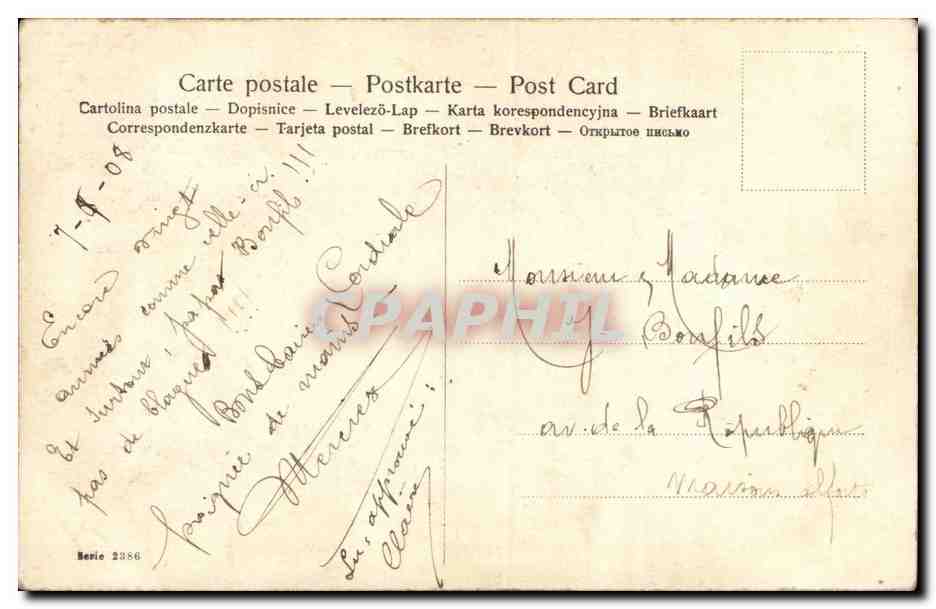 Carte postale — Postkarte — Post Card
Cartolina postale — Dopisnice — Levelezö-Lap — Karta korespondencyjna — Briefkaart
Correspondenzkarte — Tarjeta postal — Brefkort — Brevkort — Открытое письмо
08
Encore vingt
années comme celle-ci.
Et surtout, papa Bonfils !!!
pas de blagues !!!
Cordiale
poignée de mains
Mercier
Lu & approuvé :
Claire
Monsieur & Madame
J Bonfils
av. de la République
Maisons Alfort
CPAPHIL
Serie 2386